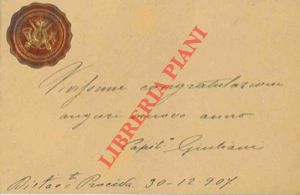 Vivissime congratulazioni
auguri nuovo anno
Papil. Giuliani
Procida 30-12-907
LIBRERIA PIANI